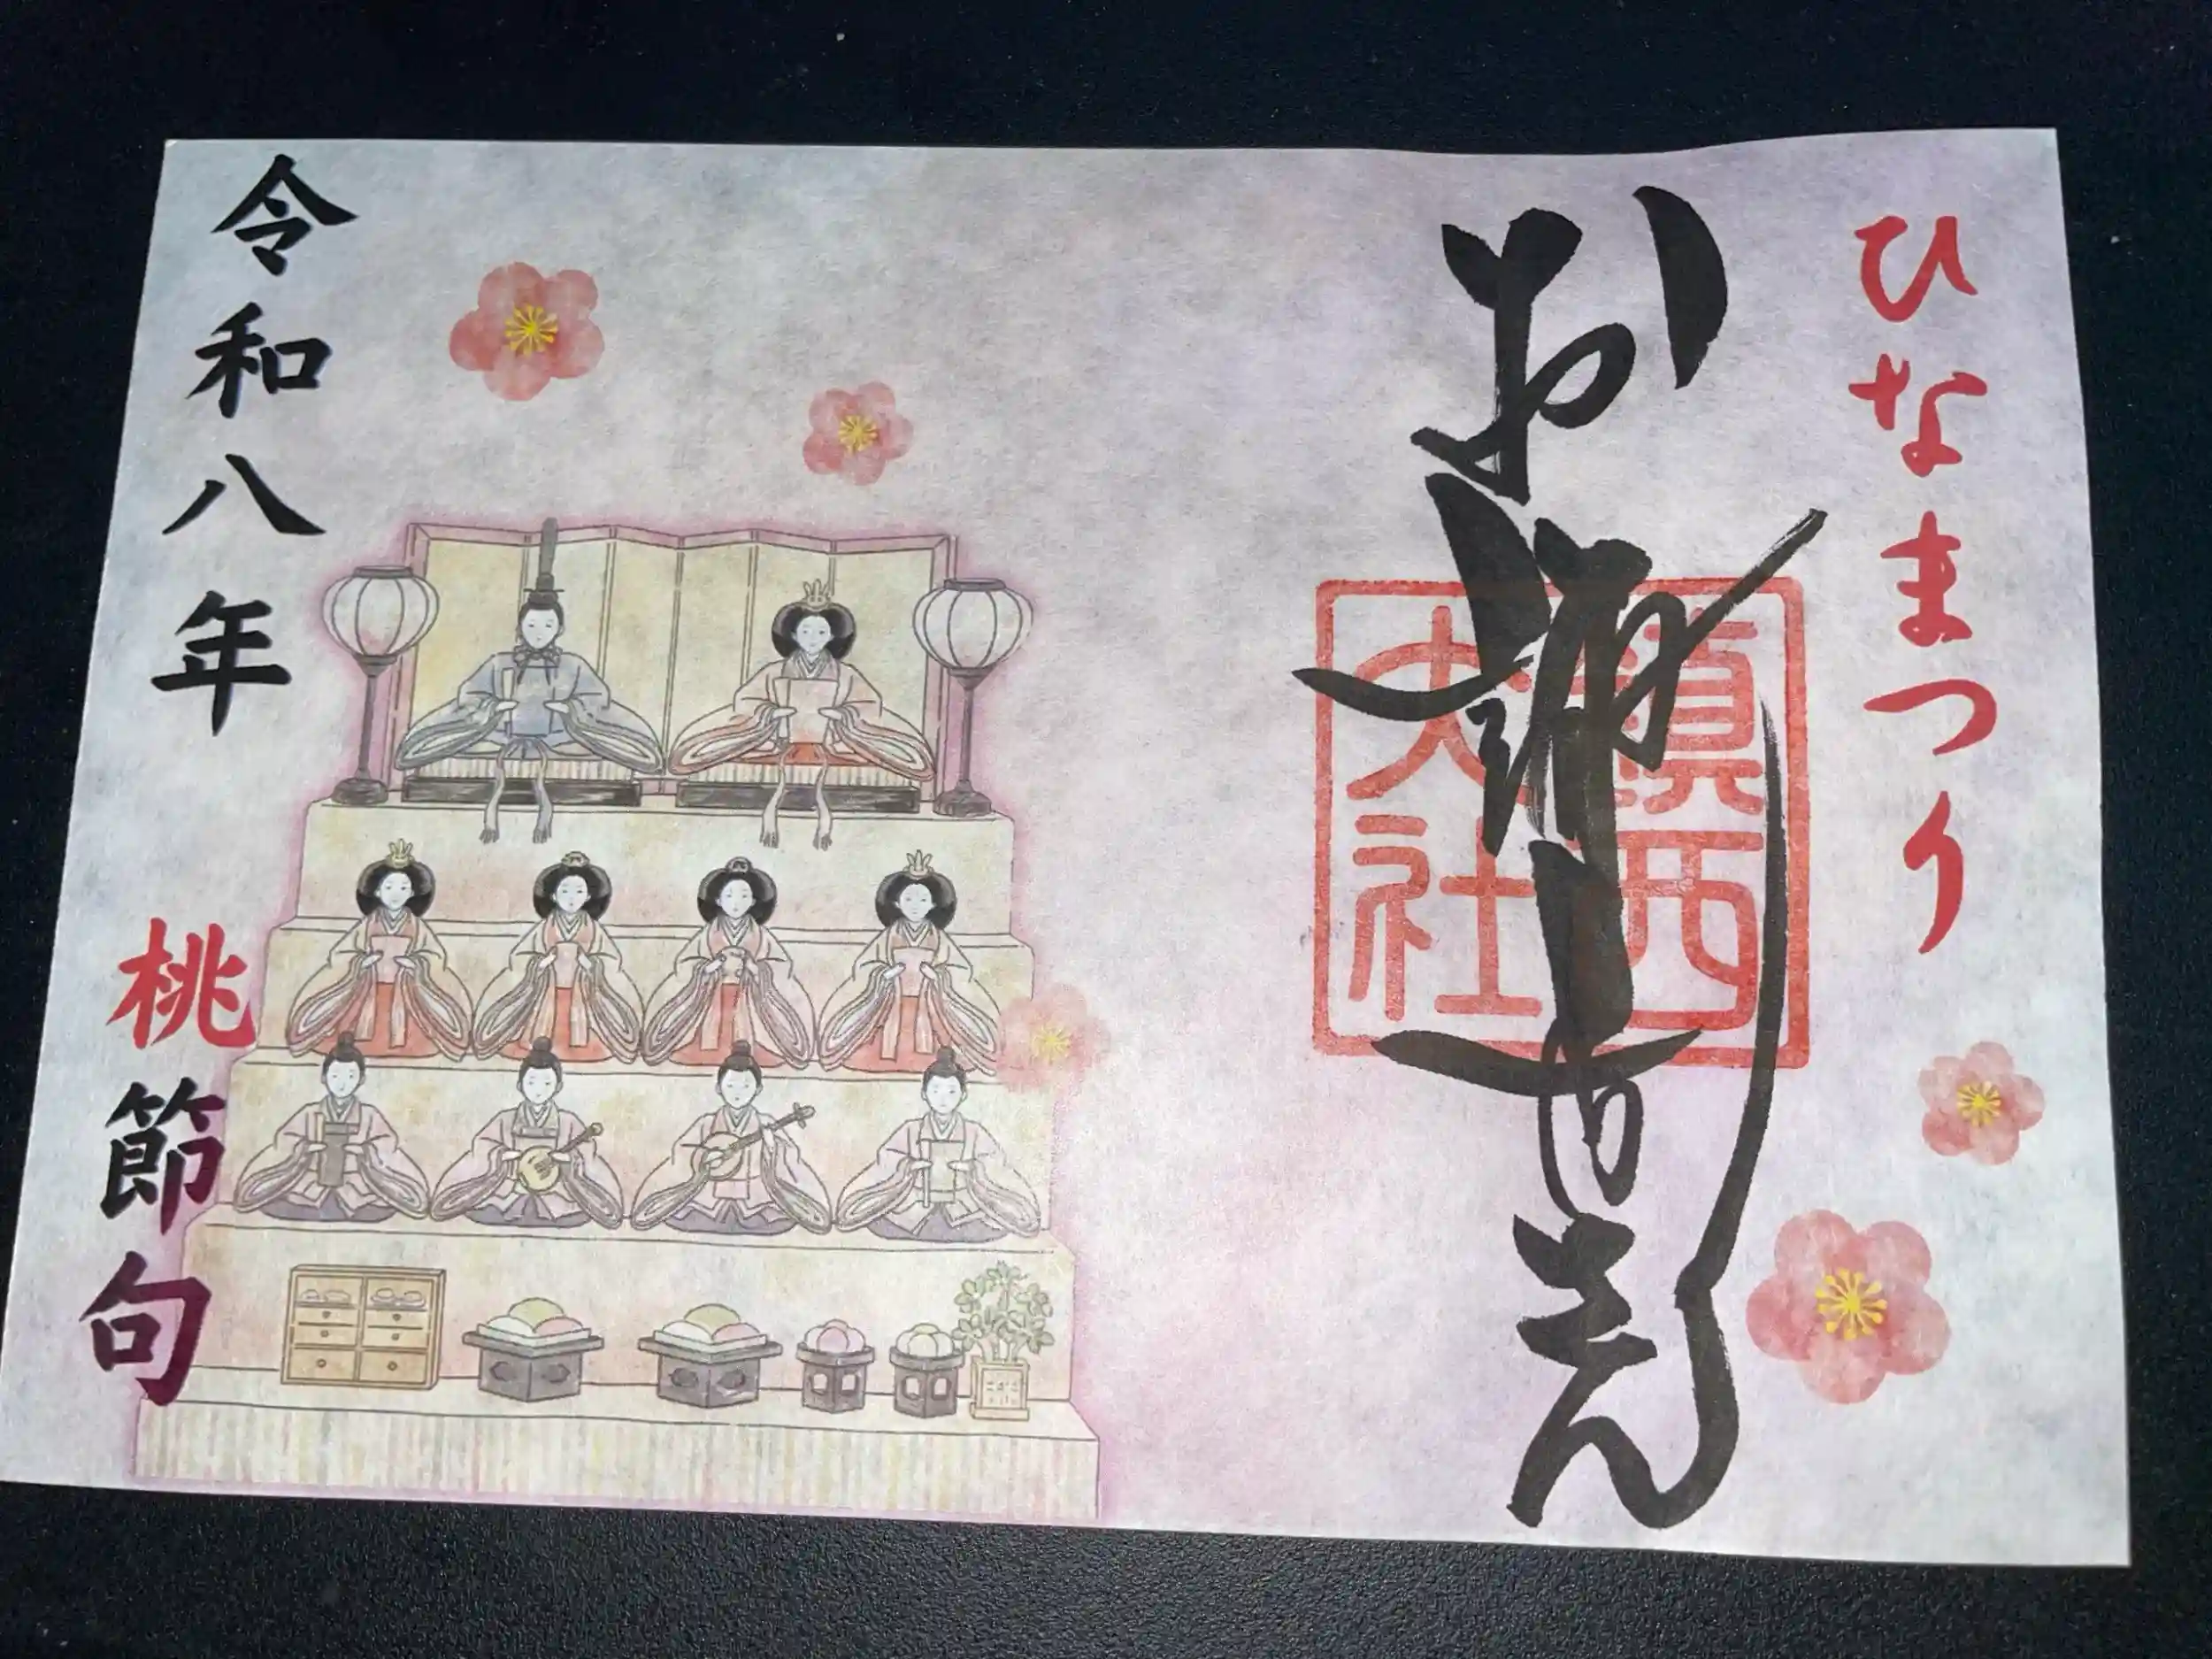 ひなまつり
お諏訪さん
鎮西
大社
令和八年 桃節句